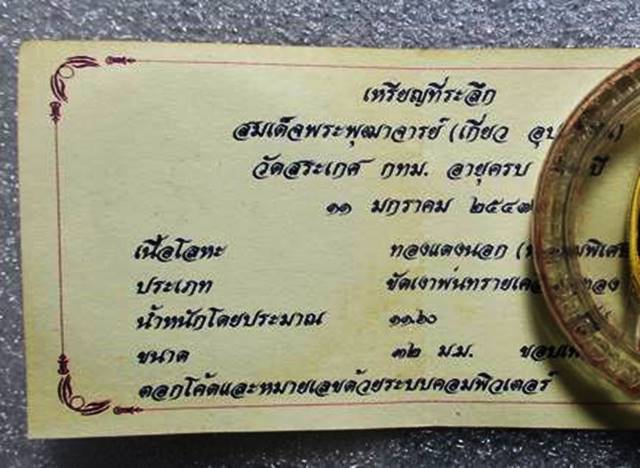 เหรียญที่ระลึก
สมเด็จพระพุฒาจารย์ (เกี่ยว
วัดสระเกศ กทม. อายุครบ ปี
๑๑ มกราคม ๒๕๔๗
เนื้อโลหะ ทองแดงนอก
ประเภท ขัดเงาพ่นทราย ทอง
น้ำหนักโดยประมาณ
ขนาด ๓๒ ม.ม.
ตอกโค้ดและหมายเลขด้วยระบบคอมพิวเตอร์